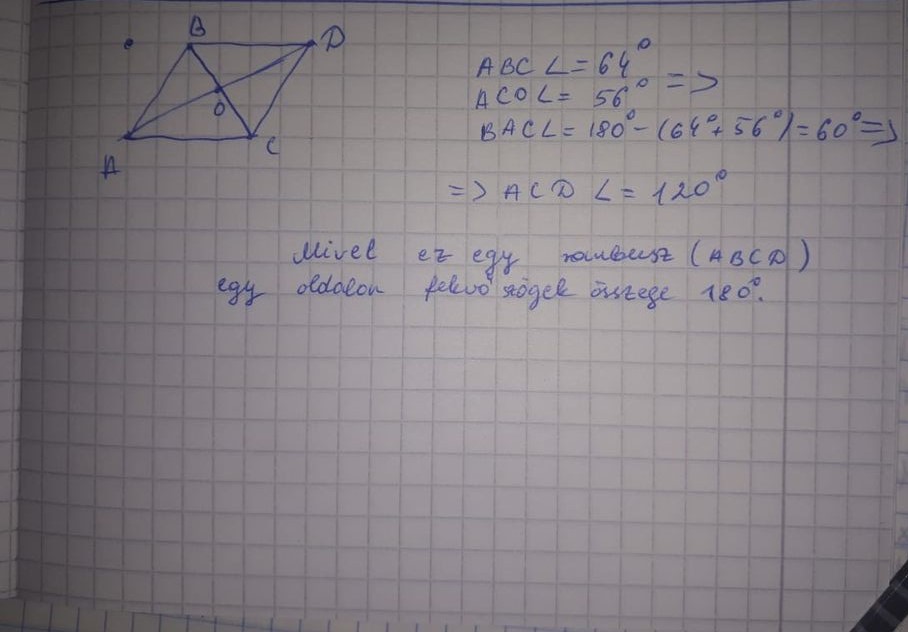 B
D
O
A
C
ABC ∠ = 64°
ACO ∠ = 56° =>
BAC ∠ = 180° - (64° + 56°) = 60° =>
=> ACD ∠ = 120°
Mivel ez egy rombusz (ABCD)
egy oldalon fekvő szögek összege 180°.